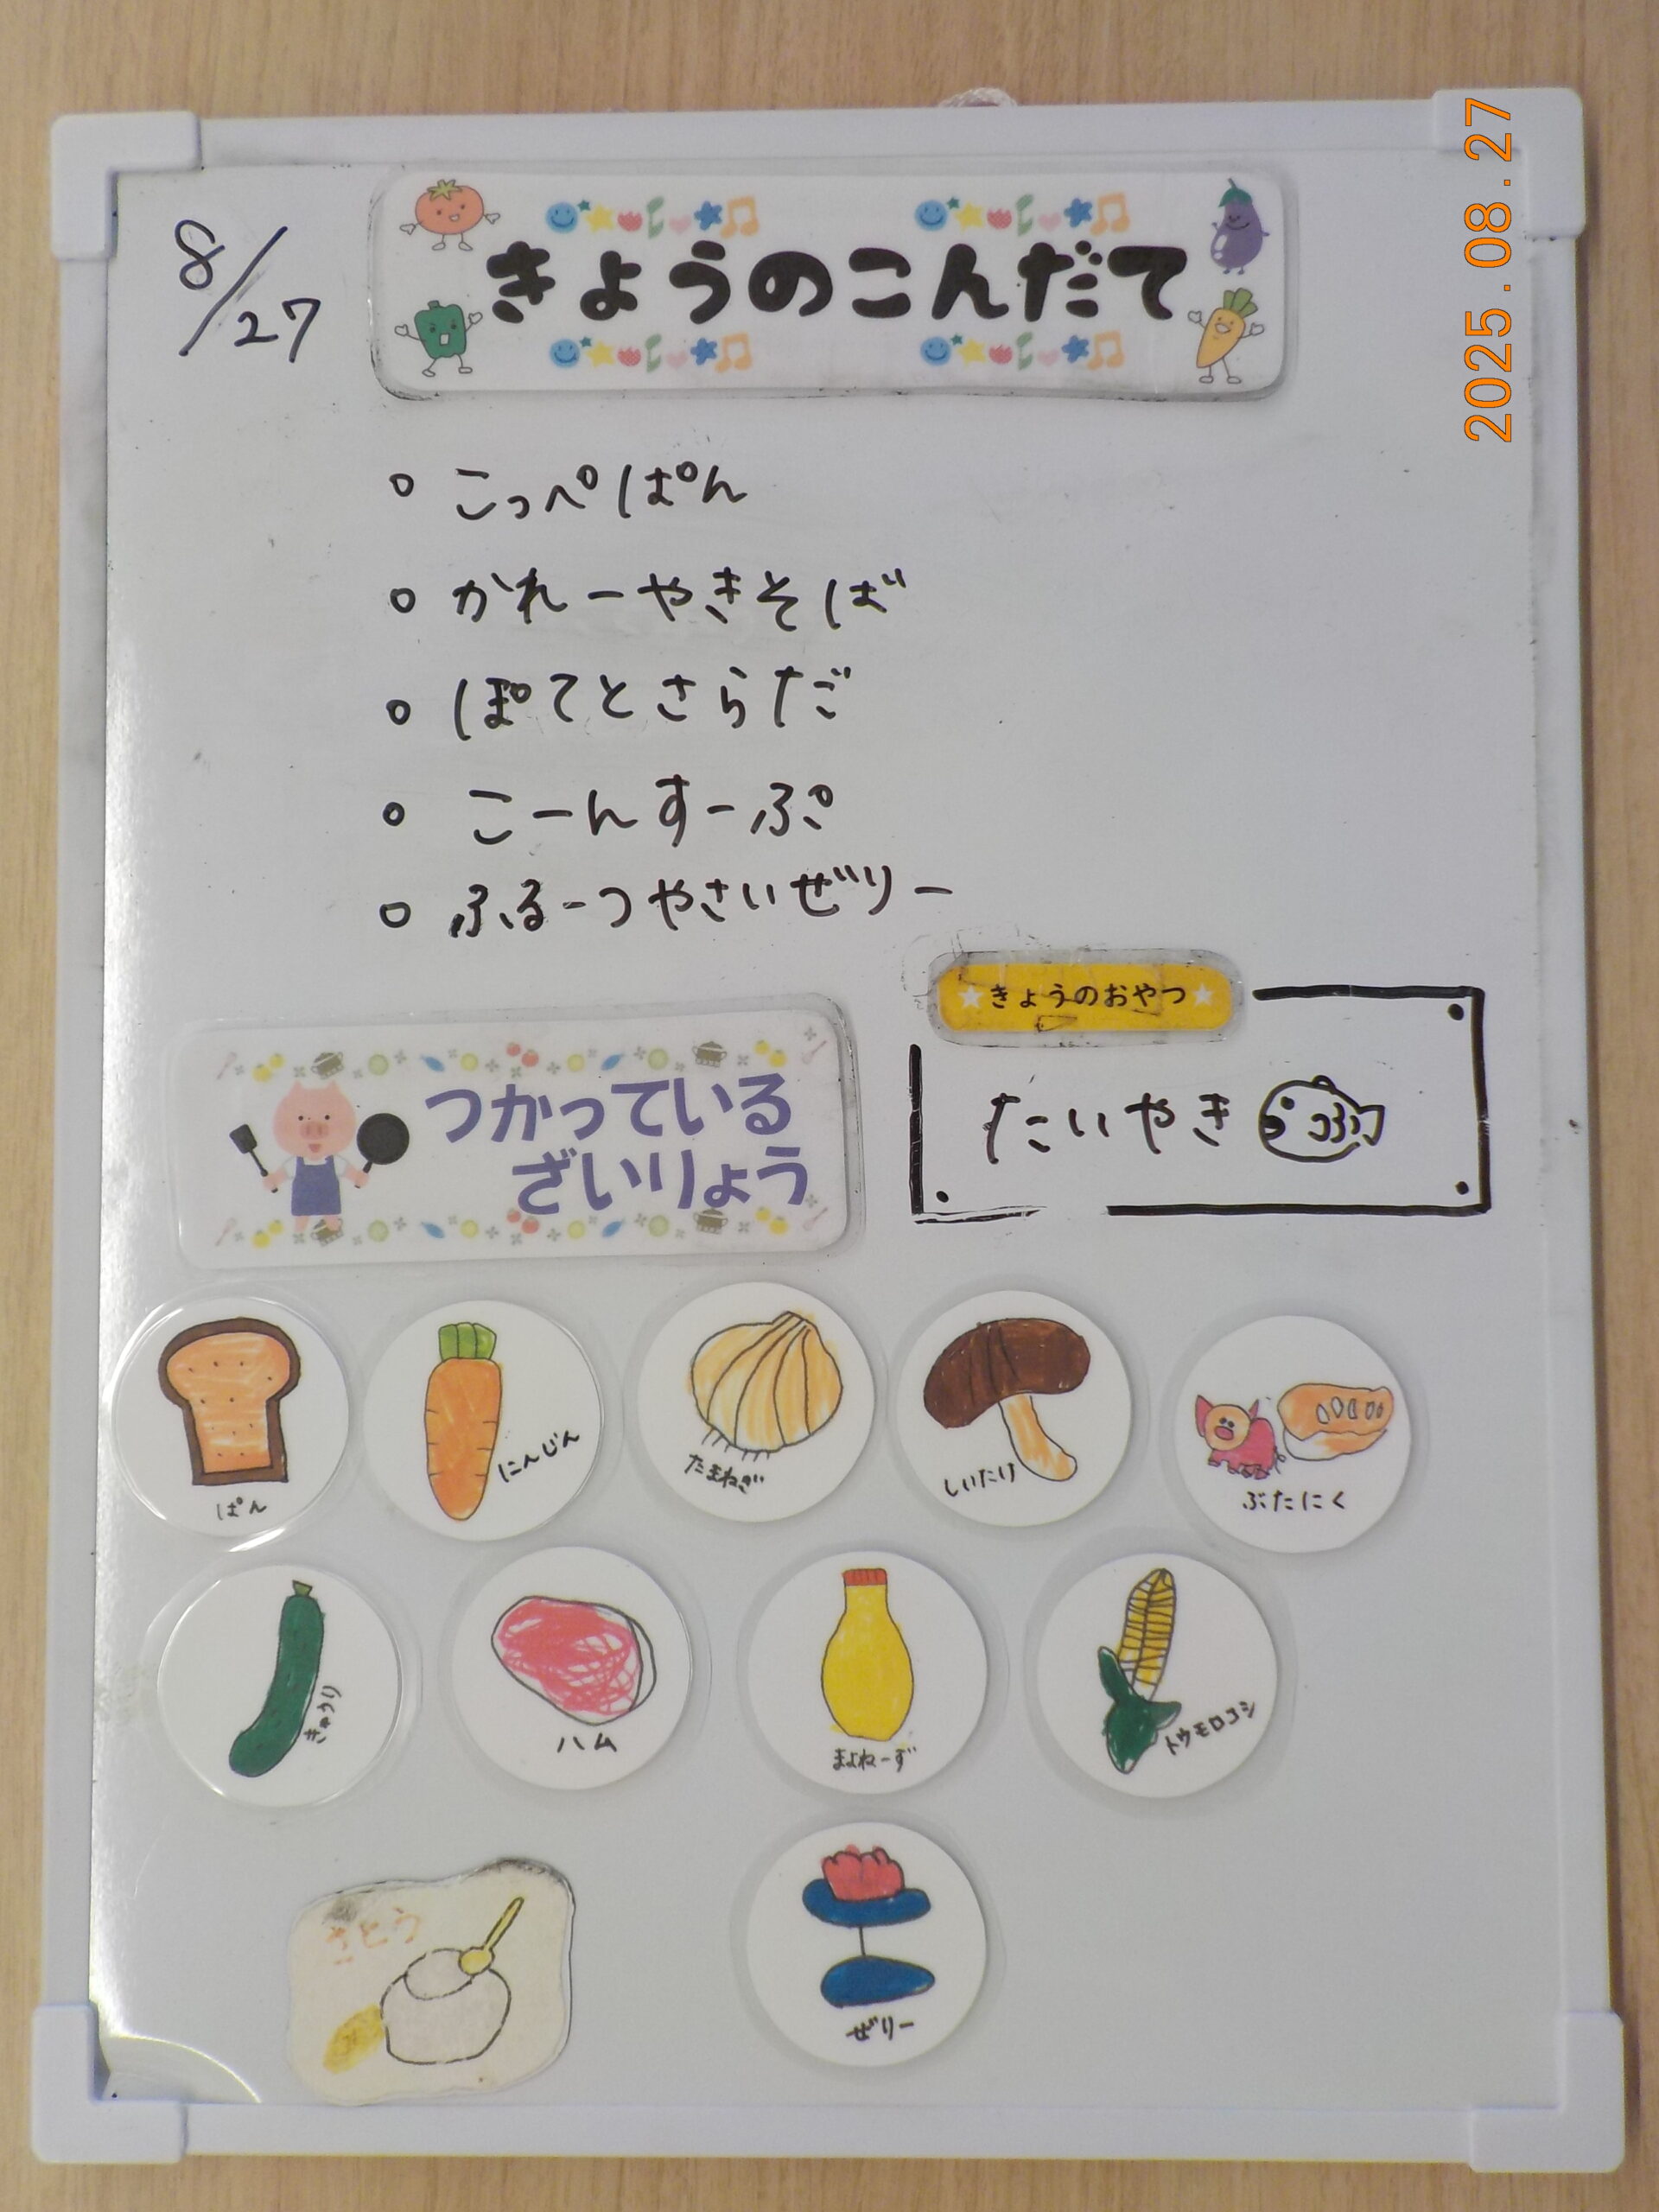 8/27
きょうのこんだて
2025.08.27
○ こっぺぱん
○ かれーやきそば
○ ぽてとさらだ
○ こーんすーぷ
○ ふるーつやさいぜりー
★きょうのおやつ★
たいやき
つかっている
ざいりょう
ぱん
にんじん
たまねぎ
しいたけ
ぶたにく
きゅうり
ハム
まよねーず
トウモロコシ
さとう
ぜりー